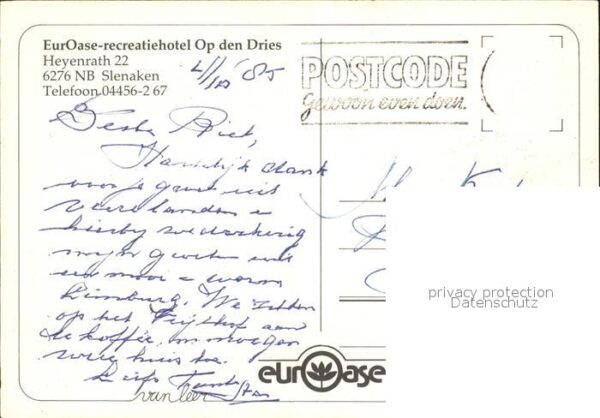 EurOase-recreatiehotel Op den Dries
Heyenrath 22
6276 NB Slenaken
Telefoon 04456-2 67
4/10 '85
POSTCODE
Gewoon even doen.
Beste Riet,
Hartelijk dank
voor je groet uit
hierbij wederkerig
mijn groeten uit
een mooi en warm
Limburg. We zitten
op het Vrijthof aan
de koffie, morgen
weer huis toe.
Liefs
van Leer
privacy protection
Datenschutz
eurOase